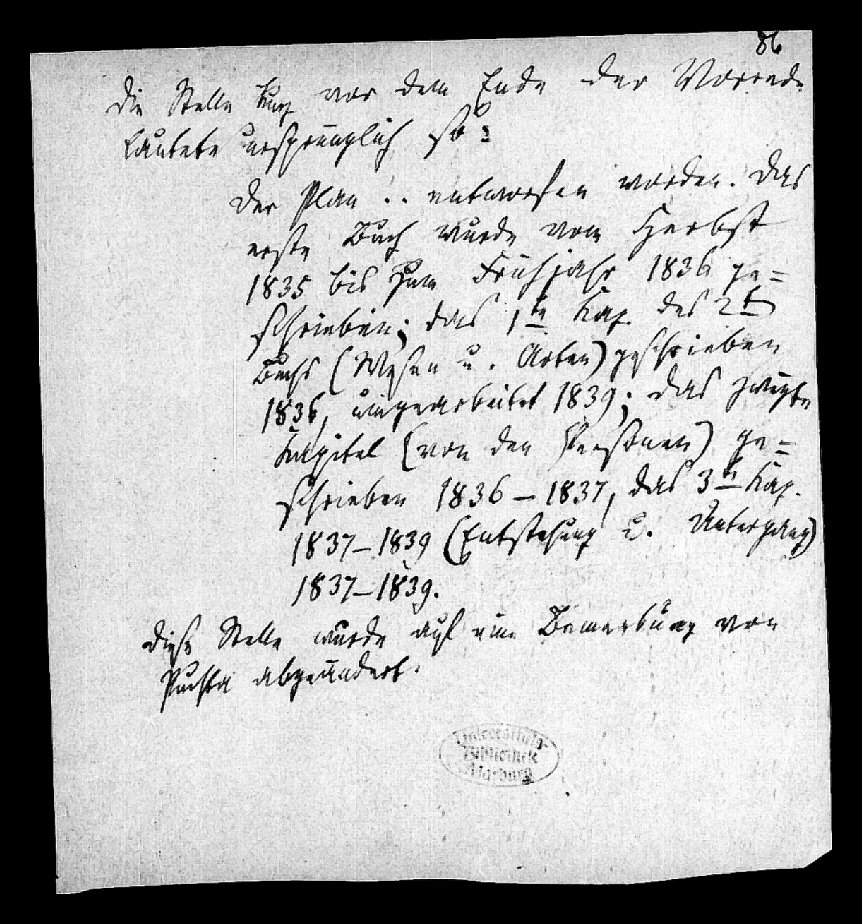 86
Die Stelle kurz vor dem Ende der Vorrede
lautete ursprünglich so:
Der Plan .. entworfen worden. Das
erste Buch wurde vom Herbst
1835 bis zum Frühjahr 1836 ge=
schrieben; das 1te Kap. des 2ten
Buchs (Wesen u. Arten) geschrieben
1836, umgearbeitet 1839; das zweyte
Kapitel (von den Personen) ge=
schrieben 1836–1837, das 3te Kap.
1837–1839 (Entstehung u. Untergang)
1837–1839.
Diese Stelle wurde auf eine Bemerkung von
Puchta abgeändert.
Universitäts-
Bibliothek
Marburg